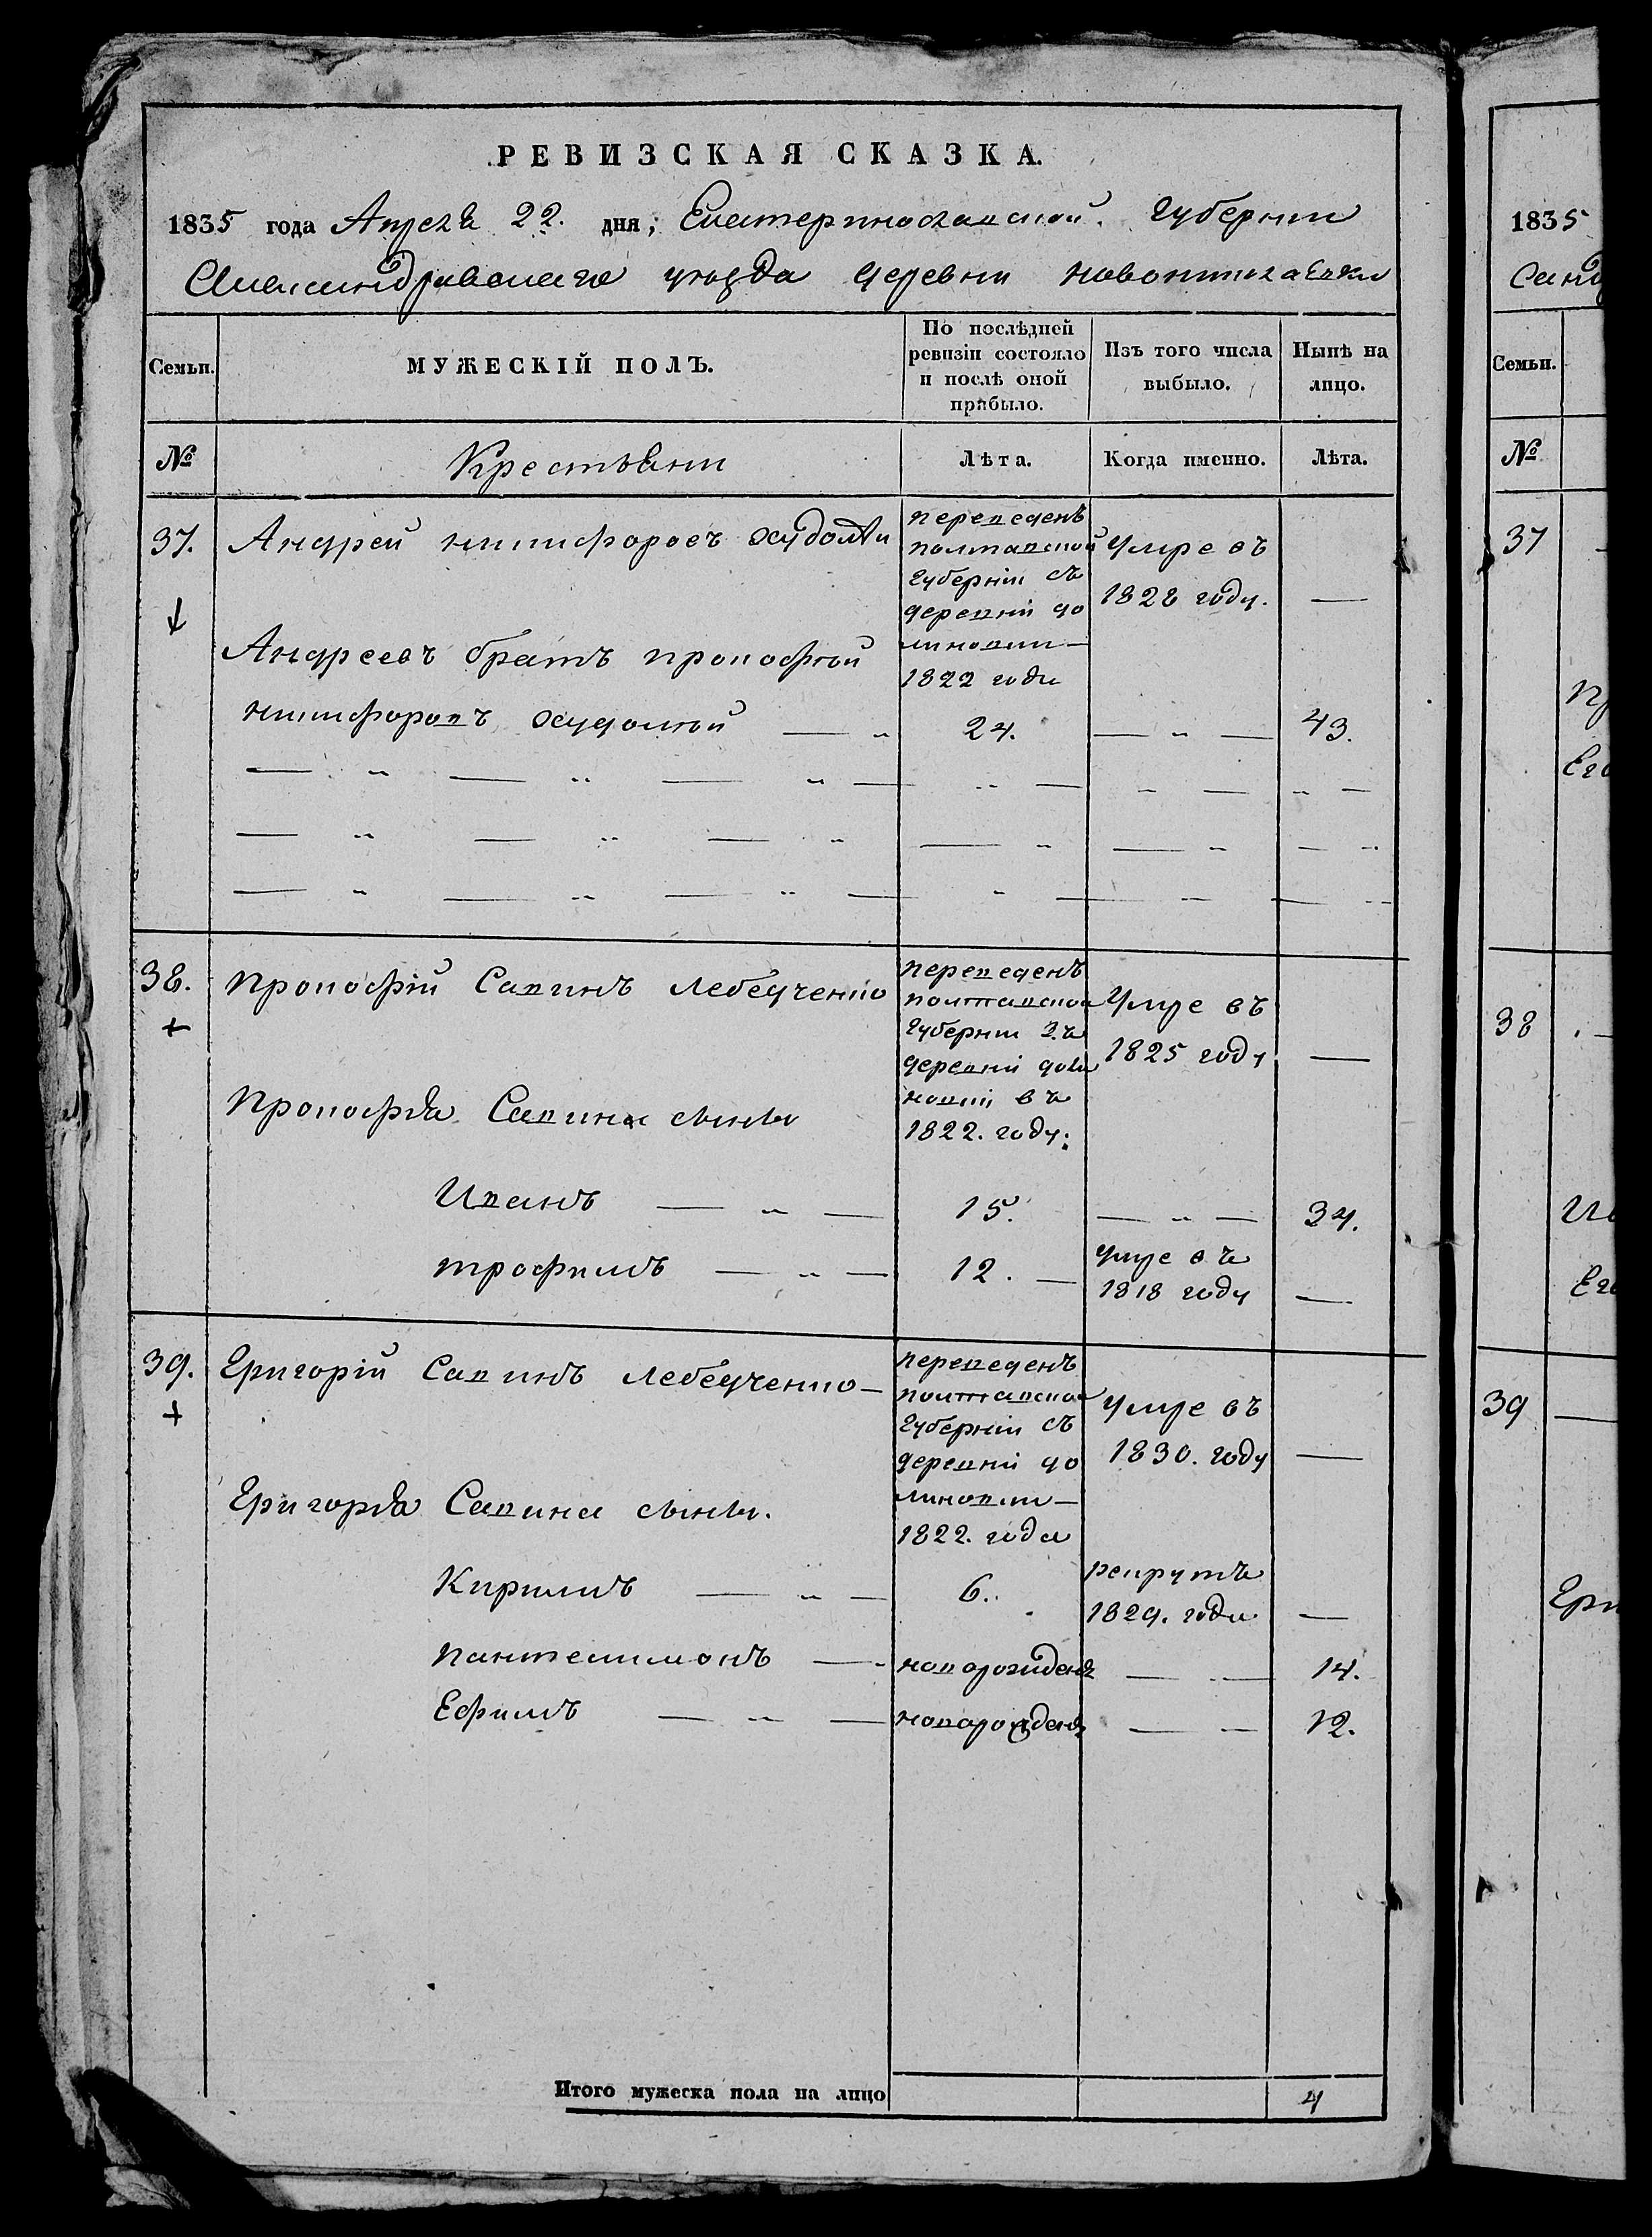 РЕВИЗСКАЯ СКАЗКА.
1835 года Апреля 22. дня; Екатеринославской. Губернии
Александровскаго уезда деревни
Семьи.
МУЖЕСКІЙ ПОЛЪ.
По послѣдней
ревизіи состояло
и послѣ оной
прибыло.
Изъ того числа
выбыло.
Нынѣ на
лицо.
№
Крестьяни
Лѣта.
Когда именно.
Лѣта.
37.
Андрей Никифоровъ
переведенъ
полтавской
губерніи съ
деревни до
линовки
1822 года
умре въ
1828 году.
—
Андреевъ братъ прокофий
Никифоровъ худолий
24.
43.
38.
+
Прокофій Савинъ Лебедченко
переведенъ
полтавской
губернии зъ
деревни доли
новки въ
1822. году.
Умре въ
1825 году
—
Прокофья Савина сыны
Иванъ
15.
34.
трофимъ
12.
умре въ
1818 году
—
39.
+
Григорій Савинъ Лебедченко
переведенъ
полтавской
губерніи съ
деревни до
линовки
1822. года
умре въ
1830. году
—
Григорья Савина сыны.
Кирилъ
6.
рекрутъ
1829. года
—
Пантелимонъ
новорожденъ
14.
Ефимъ
новорожденъ
12.
Итого мужеска пола на лицо
4
1835
Семьи.
№
37
38
39